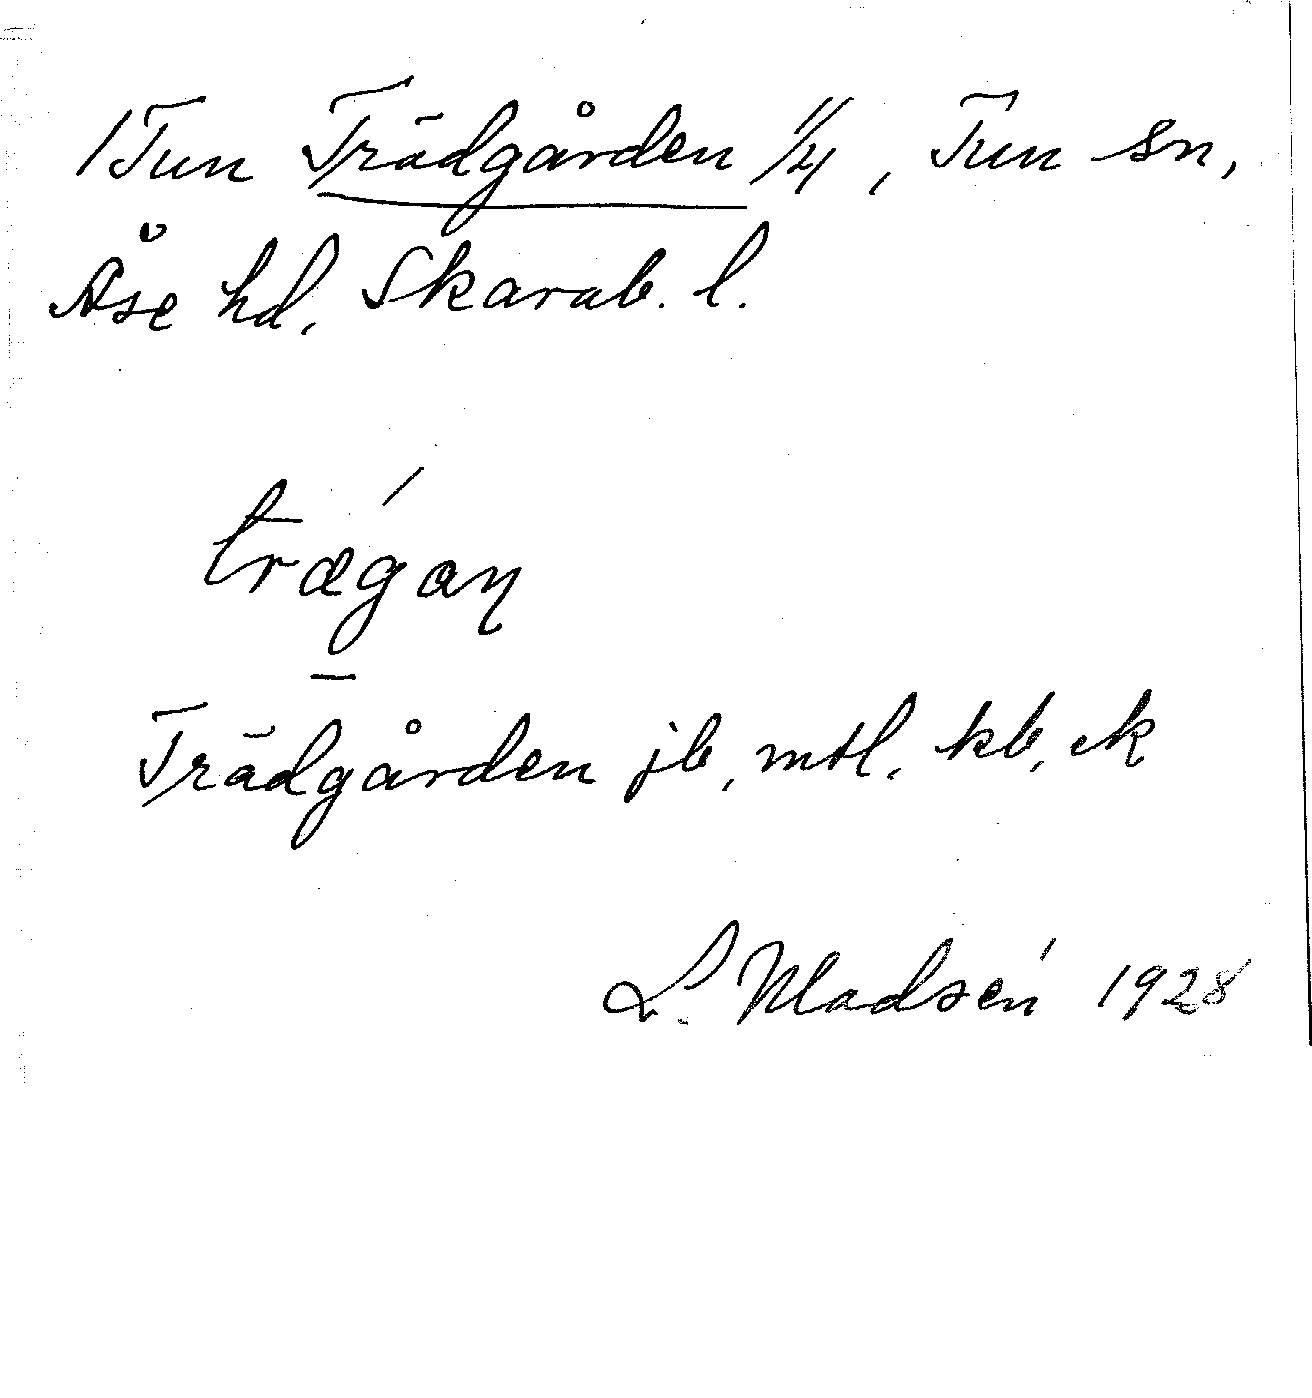 /Tun Trädgården 1/4, Tun sn,
Åse hd, Skarab. l.
trægáɳ
Trädgården jb, mtl, kb, ek
L. Madsén 1928